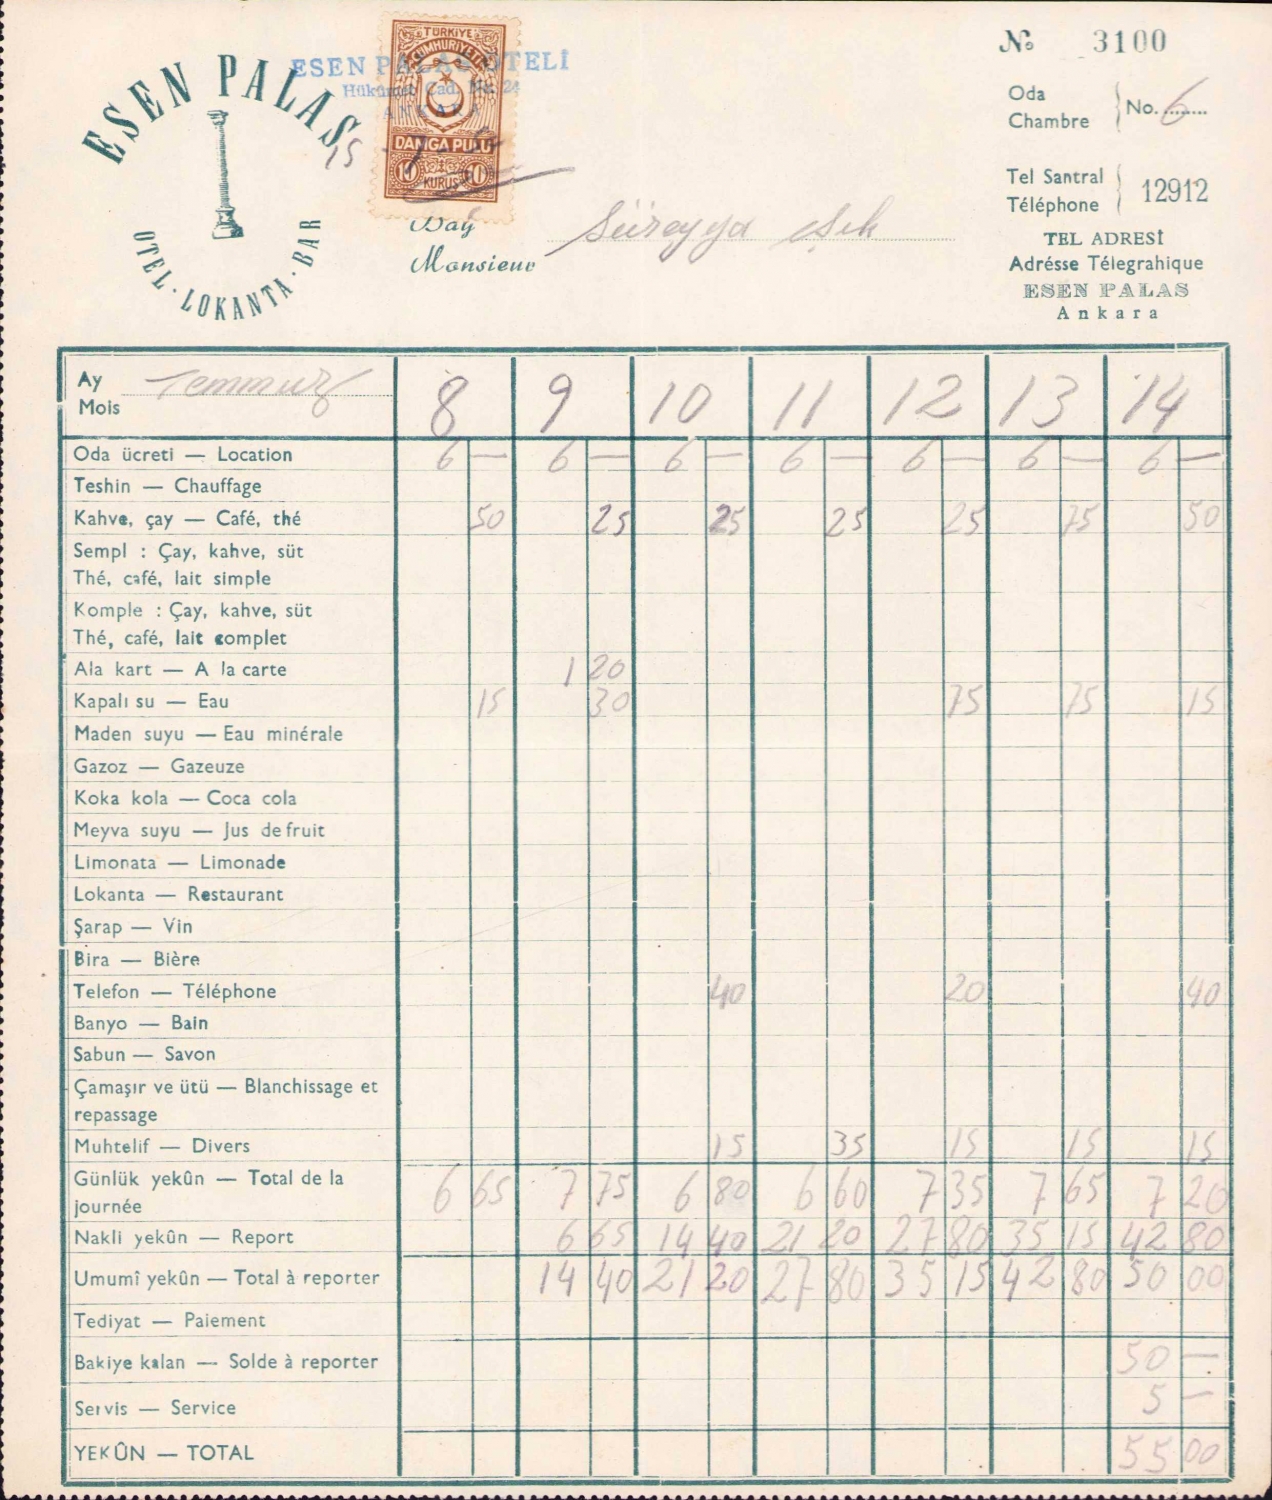 ESEN PALAS
OTEL · LOKANTA · BAR
ESEN PALAS OTELİ
Hükûmet Cad. No. 24
ANKARA
TÜRKİYE
CUMHURİYETİ
DAMGA PULU
10 KURUŞ 10
15 - 7 -
No 3100
Oda
Chambre No. 6
Tel Santral
Téléphone 12912
TEL ADRESİ
Adrésse Télegrahique
ESEN PALAS
Ankara
Bay
Monsieur Süreyya Işık
Ay
Mois Temmuz 8 9 10 11 12 13 14
Oda ücreti — Location 6 — 6 — 6 — 6 — 6 — 6 — 6 —
Teshin — Chauffage
Kahve, çay — Café, thé 50 25 25 25 25 75 50
Sempl : Çay, kahve, süt
Thé, café, lait simple
Komple : Çay, kahve, süt
Thé, café, lait complet
Ala kart — A la carte 1 20
Kapalı su — Eau 15 30 75 75 15
Maden suyu — Eau minérale
Gazoz — Gazeuze
Koka kola — Coca cola
Meyva suyu — Jus de fruit
Limonata — Limonade
Lokanta — Restaurant
Şarap — Vin
Bira — Bière
Telefon — Téléphone 40 20 40
Banyo — Bain
Sabun — Savon
Çamaşır ve ütü — Blanchissage et
repassage
Muhtelif — Divers 15 35 15 15 15
Günlük yekûn — Total de la
journée 6 65 7 75 6 80 6 60 7 35 7 65 7 20
Nakli yekûn — Report 6 65 14 40 21 20 27 80 35 15 42 80
Umumî yekûn — Total à reporter 14 40 21 20 27 80 35 15 42 80 50 00
Tediyat — Paiement
Bakiye kalan — Solde à reporter 50 —
Servis — Service 5 —
YEKÛN — TOTAL 55 00